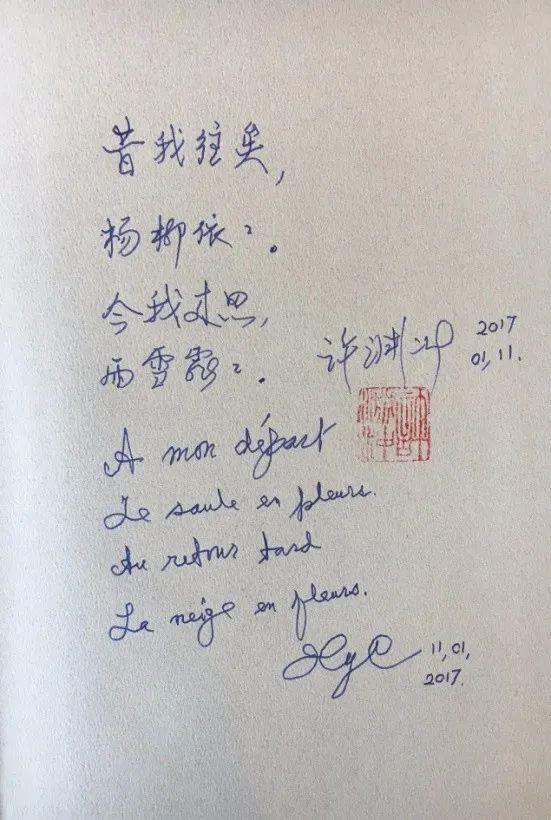 昔我往矣,
杨柳依〻.
今我来思,
雨雪霏〻.
许渊冲 2017
01,11.
A mon départ
Le saule en pleurs.
Au retour tard
La neige en fleurs.
XyC 11,01,
2017.